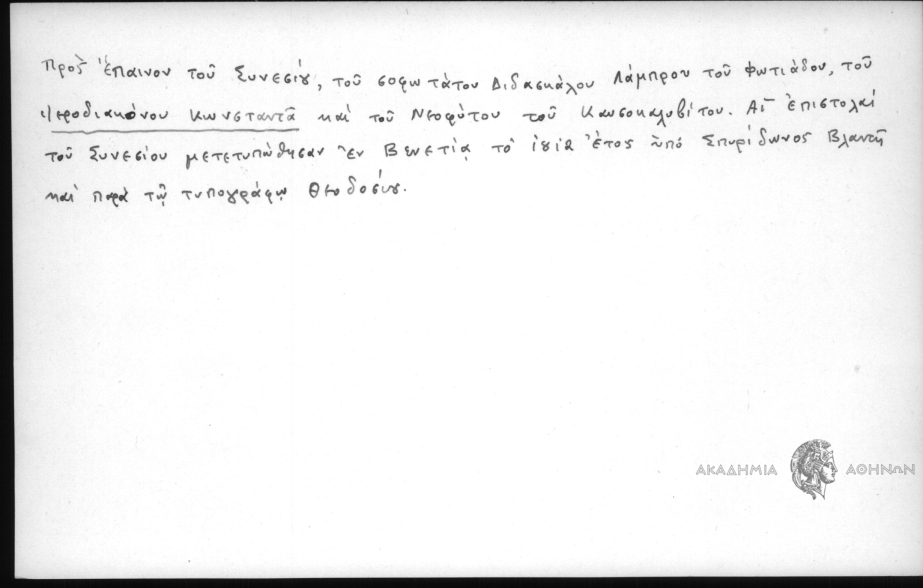 Πρὸς ἔπαινον τοῦ Συνεσίου, τοῦ σοφωτάτου Διδασκάλου Λάμπρου τοῦ Φωτιάδου, τοῦ
ἱεροδιακόνου Κωνσταντᾶ καὶ τοῦ Νεοφύτου τοῦ Καυσοκαλυβίτου. Αἱ Ἐπιστολαί
τοῦ Συνεσίου μετετυπώθησαν ἐν Βενετίᾳ τὸ ἔτος ὑπό Σπυρίδωνος Βλαντῆ
καὶ παρά τῷ τυπογράφῳ Θεοδοσίου.
ΑΚΑΔΗΜΙΑ ΑΘΗΝΩΝ